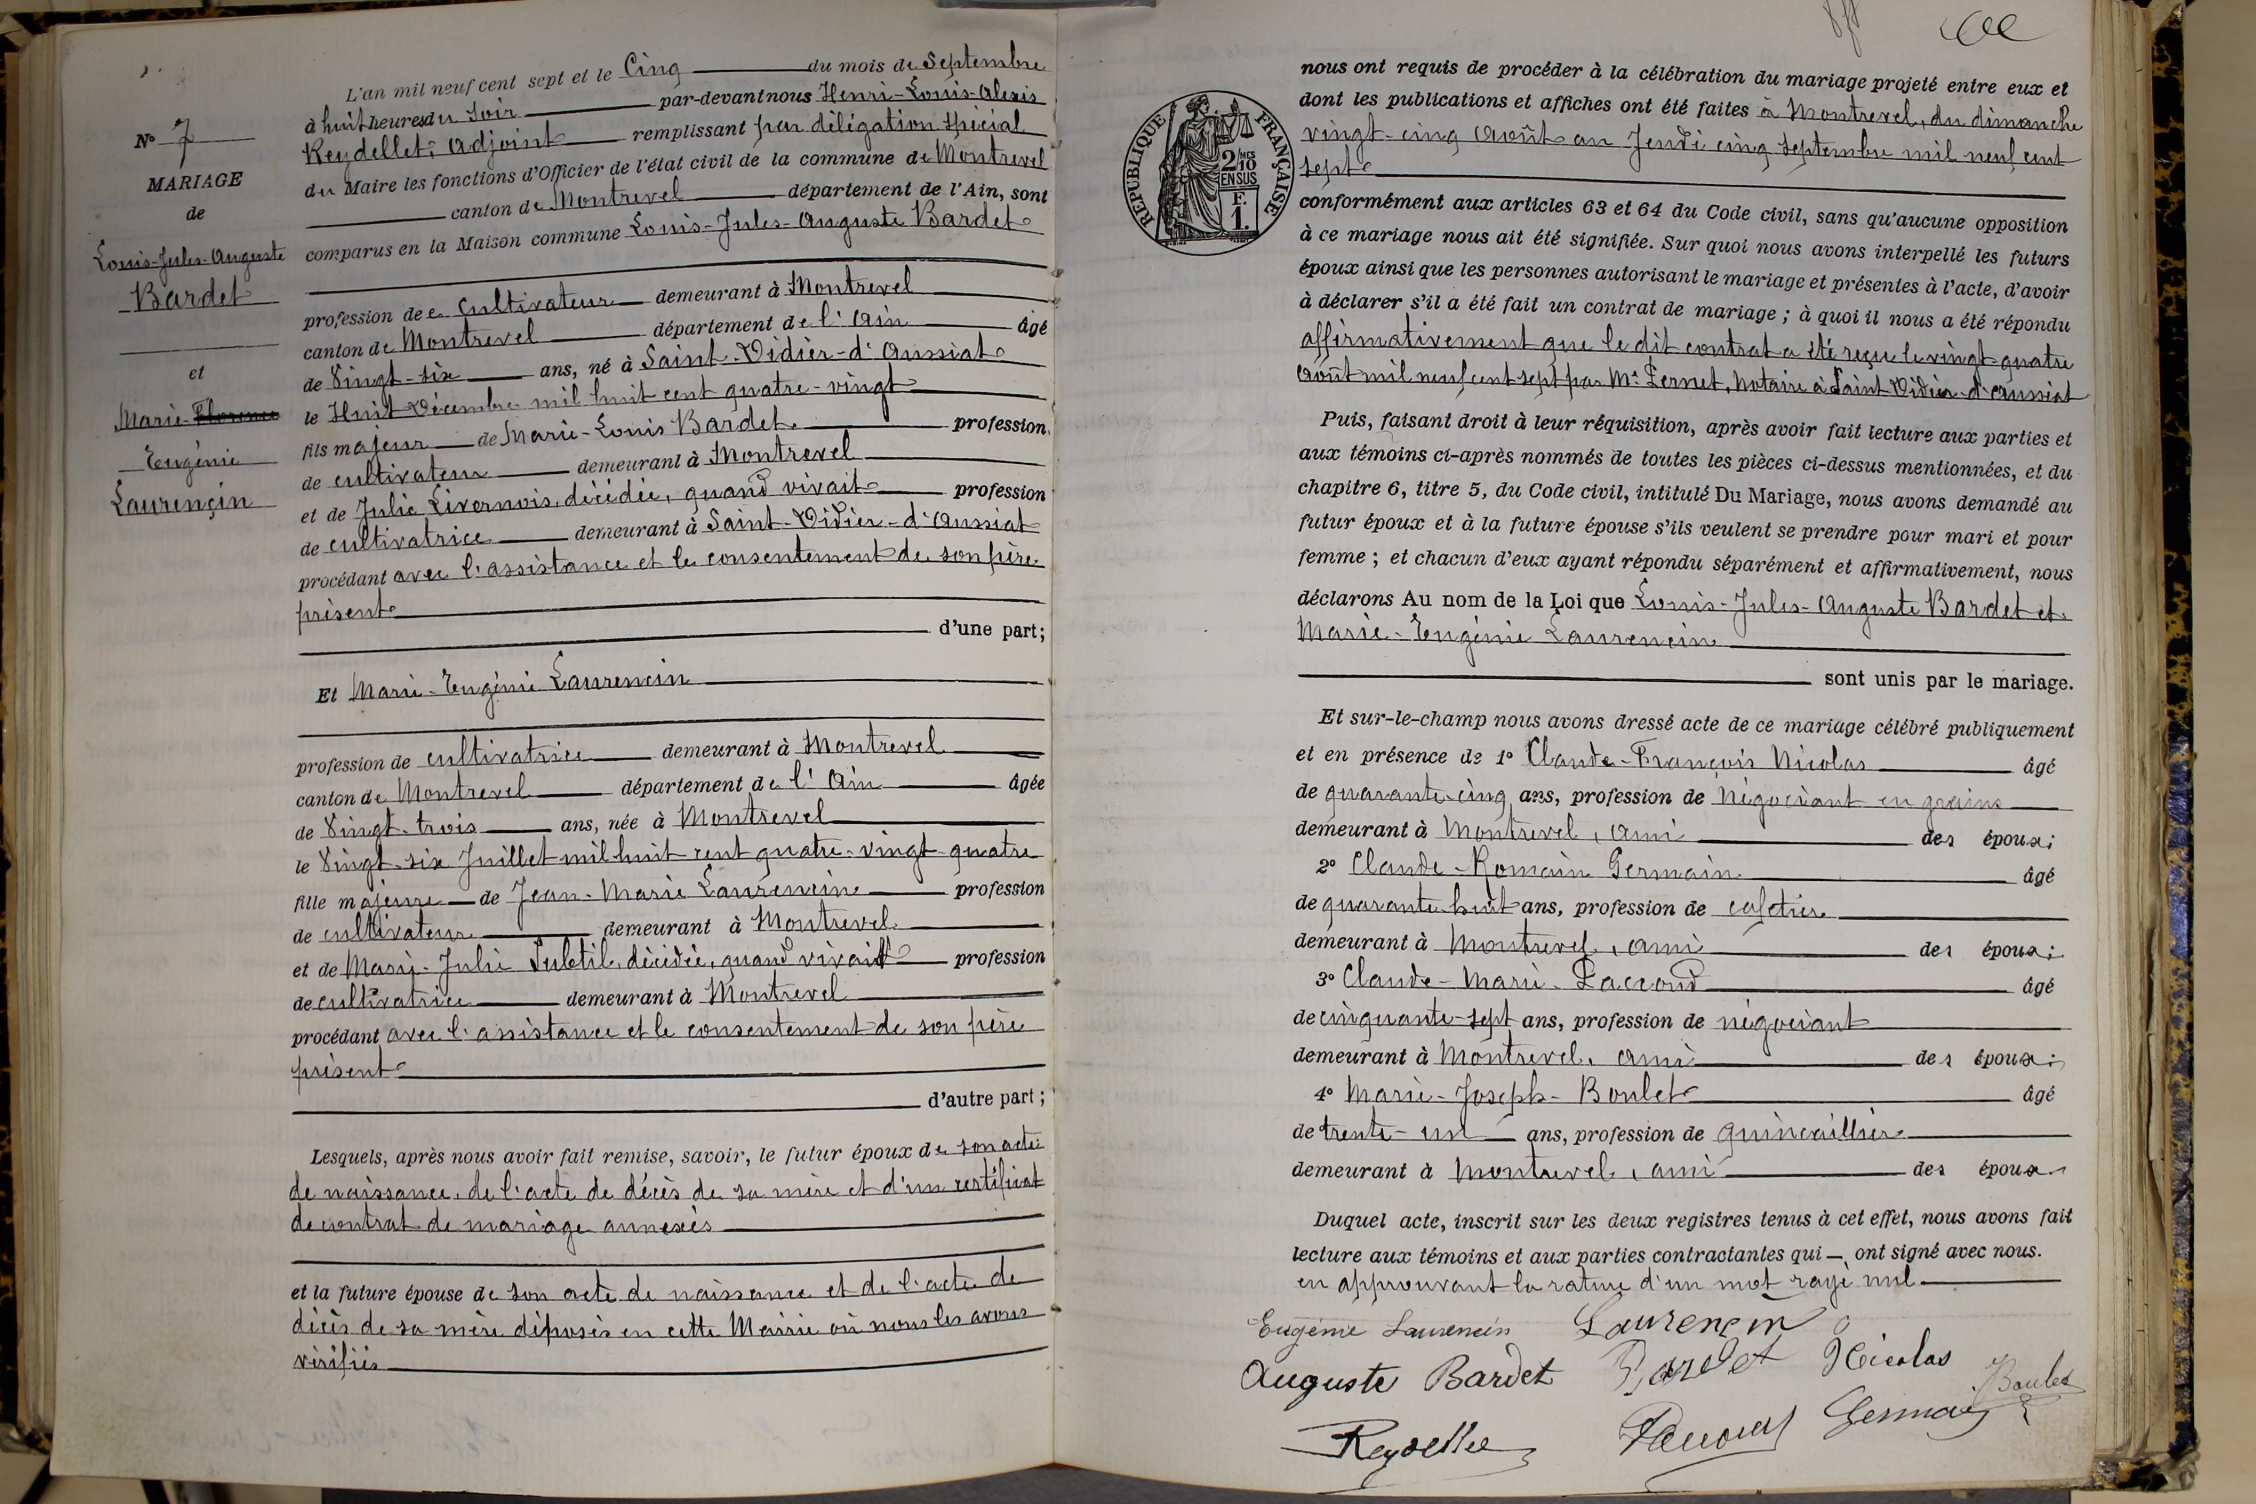 L'an mil neuf cent sept et le Cinq du mois de Septembre
à huit heures du soir par-devant nous Henri-Louis-Alexis
Reydellet, Adjoint remplissant par délégation spécial
du Maire les fonctions d'Officier de l'état civil de la commune de Montrevel
canton de Montrevel département de l'Ain, sont
comparus en la Maison commune Louis-Jules-Auguste Bardet
profession de cultivateur demeurant à Montrevel
canton de Montrevel département de l'Ain âgé
de Vingt-six ans, né à Saint-Didier-d'Aussiat
le Huit Décembre mil huit cent quatre-vingt
fils majeur de Marie-Louis Bardet profession
de cultivateur demeurant à Montrevel
et de Julie Livernois, décédée, quand vivait profession
de cultivatrice demeurant à Saint-Didier-d'Aussiat
procédant avec l'assistance et le consentement de son père
présent
d'une part;
Et Marie-Eugénie Laurencin
profession de cultivatrice demeurant à Montrevel
canton de Montrevel département de l'Ain âgée
de Vingt-trois ans, née à Montrevel
le Vingt-six Juillet mil huit cent quatre-vingt-quatre
fille majeure de Jean-Marie Laurencin profession
de cultivateur demeurant à Montrevel
et de Marie-Julie Subtil, décédée, quand vivait profession
de cultivatrice demeurant à Montrevel
procédant avec l'assistance et le consentement de son père
présent
d'autre part;
Lesquels, après nous avoir fait remise, savoir, le futur époux de son acte
de naissance, de l'acte de décès de sa mère et d'un certificat
de contrat de mariage annexés
et la future épouse de son acte de naissance et de l'acte de
décès de sa mère déposés en cette Mairie où nous les avons
vérifiés
N° 7
MARIAGE
de
Louis-Jules-Auguste
Bardet
et
Marie-Florence
Eugénie
Laurençin
nous ont requis de procéder à la célébration du mariage projeté entre eux et
dont les publications et affiches ont été faites à Montrevel, du dimanche
vingt-cinq Août au Jeudi cinq septembre mil neuf cent
sept
RÉPUBLIQUE FRANÇAISE
2/10 MES
EN SUS
F.
1.
conformément aux articles 63 et 64 du Code civil, sans qu'aucune opposition
à ce mariage nous ait été signifiée. Sur quoi nous avons interpellé les futurs
époux ainsi que les personnes autorisant le mariage et présentes à l'acte, d'avoir
à déclarer s'il a été fait un contrat de mariage; à quoi il nous a été répondu
affirmativement que le dit contrat a été reçu le vingt-quatre
Août mil neuf cent sept par Me Pernet, Notaire à Saint-Didier-d'Aussiat
Puis, faisant droit à leur réquisition, après avoir fait lecture aux parties et
aux témoins ci-après nommés de toutes les pièces ci-dessus mentionnées, et du
chapitre 6, titre 5, du Code civil, intitulé Du Mariage, nous avons demandé au
futur époux et à la future épouse s'ils veulent se prendre pour mari et pour
femme; et chacun d'eux ayant répondu séparément et affirmativement, nous
déclarons Au nom de la Loi que Louis-Jules-Auguste Bardet et
Marie-Eugénie Laurencin
sont unis par le mariage.
Et sur-le-champ nous avons dressé acte de ce mariage célébré publiquement
et en présence de 1° Claude-François Nicolas âgé
de quarante-cinq ans, profession de négociant en grains
demeurant à Montrevel, ami des époux;
2° Claude-Romain Germain âgé
de quarante-huit ans, profession de cafetier
demeurant à Montrevel, ami des époux;
3° Claude-Marie Paccoud âgé
de cinquante-sept ans, profession de négociant
demeurant à Montrevel, ami des époux;
4° Marie-Joseph-Boulet âgé
de trente-un ans, profession de quincaillier
demeurant à Montrevel, ami des époux
Duquel acte, inscrit sur les deux registres tenus à cet effet, nous avons fait
lecture aux témoins et aux parties contractantes qui ont signé avec nous.
en approuvant la rature d'un mot rayé nul
Eugénie Laurencin Laurençin
Auguste Bardet Bardet Nicolas Boulet
Reydellet Paccoud Germain